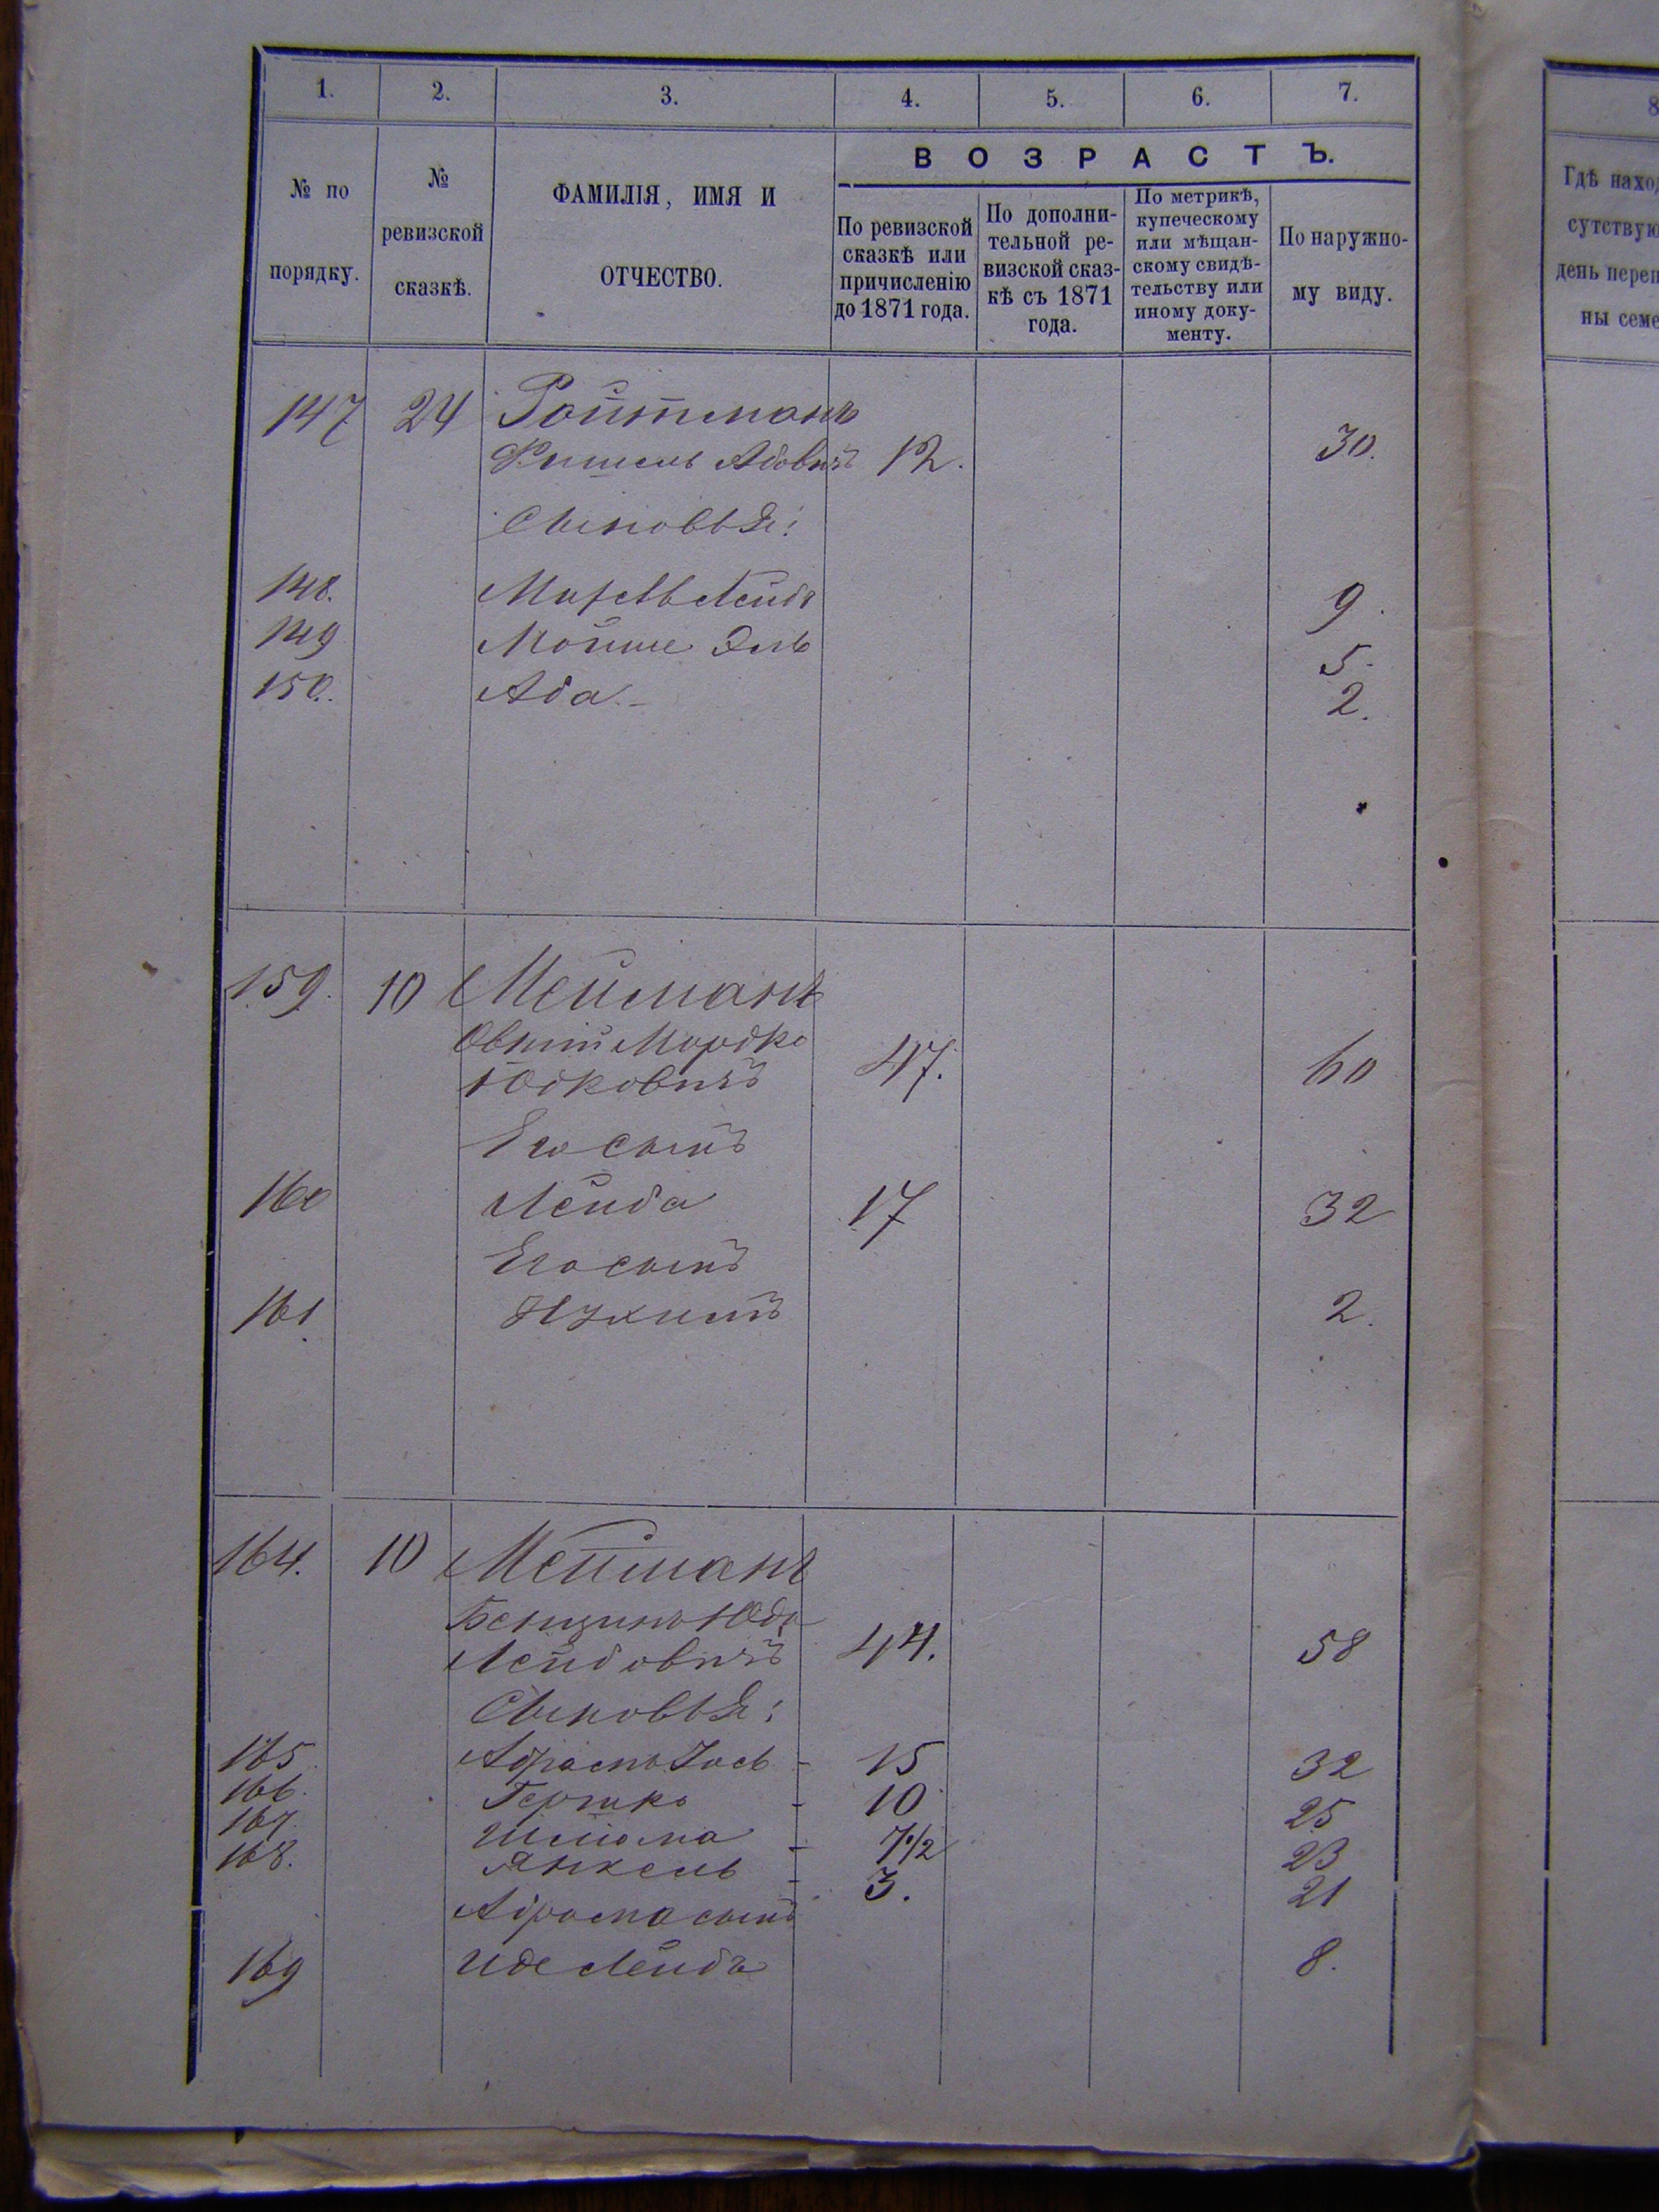 1. 2. 3. 4. 5. 6. 7.
№ по порядку.
№ ревизской сказкѣ.
ФАМИЛІЯ, ИМЯ И ОТЧЕСТВО.
ВОЗРАСТЪ.
По ревизской сказкѣ или причисленію до 1871 года.
По дополнительной ревизской сказкѣ съ 1871 года.
По метрикѣ, купеческому или мѣщанскому свидѣтельству или иному документу.
По наружному виду.
8
Гдѣ наход
сутствую
день переп
ны семе
147 24 Ройтманъ
Фишель Абовичъ 12. 30.
Сыновья:
148. Лейба 9.
149 Мойше Эль 5.
150. Аба 2.
159. 10 Мейманъ
Овшій Мордко
Юдковичъ 47. 60
Его сынъ
160 Лейба 17 32
Его сынъ
161 Нухимъ 2.
164. 10 Мейманъ
Бенционъ Юда
Лейбовичъ 44. 58
Сыновья:
165. Абрамъ Іось - 15 32
166. Гершко - 10 25
167. Шлёма - 7 1/2 23
168. Янкель - 3. 21
Абрама сынъ
169 Иде Лейба 8.